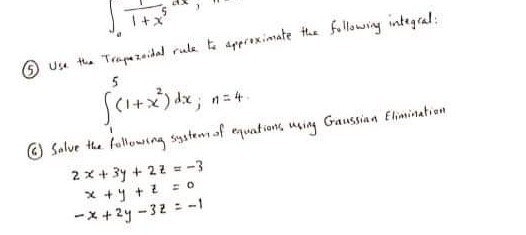 ∫₀ 1/(1+x⁵) dx ;
⑤ Use the Trapezoidal rule to approximate the following integral:
∫₁⁵ (1+x²) dx ; n=4.
⑥ Solve the following system of equations using Gaussian Elimination
2x + 3y + 2z = -3
x + y + z = 0
-x + 2y - 3z = -1